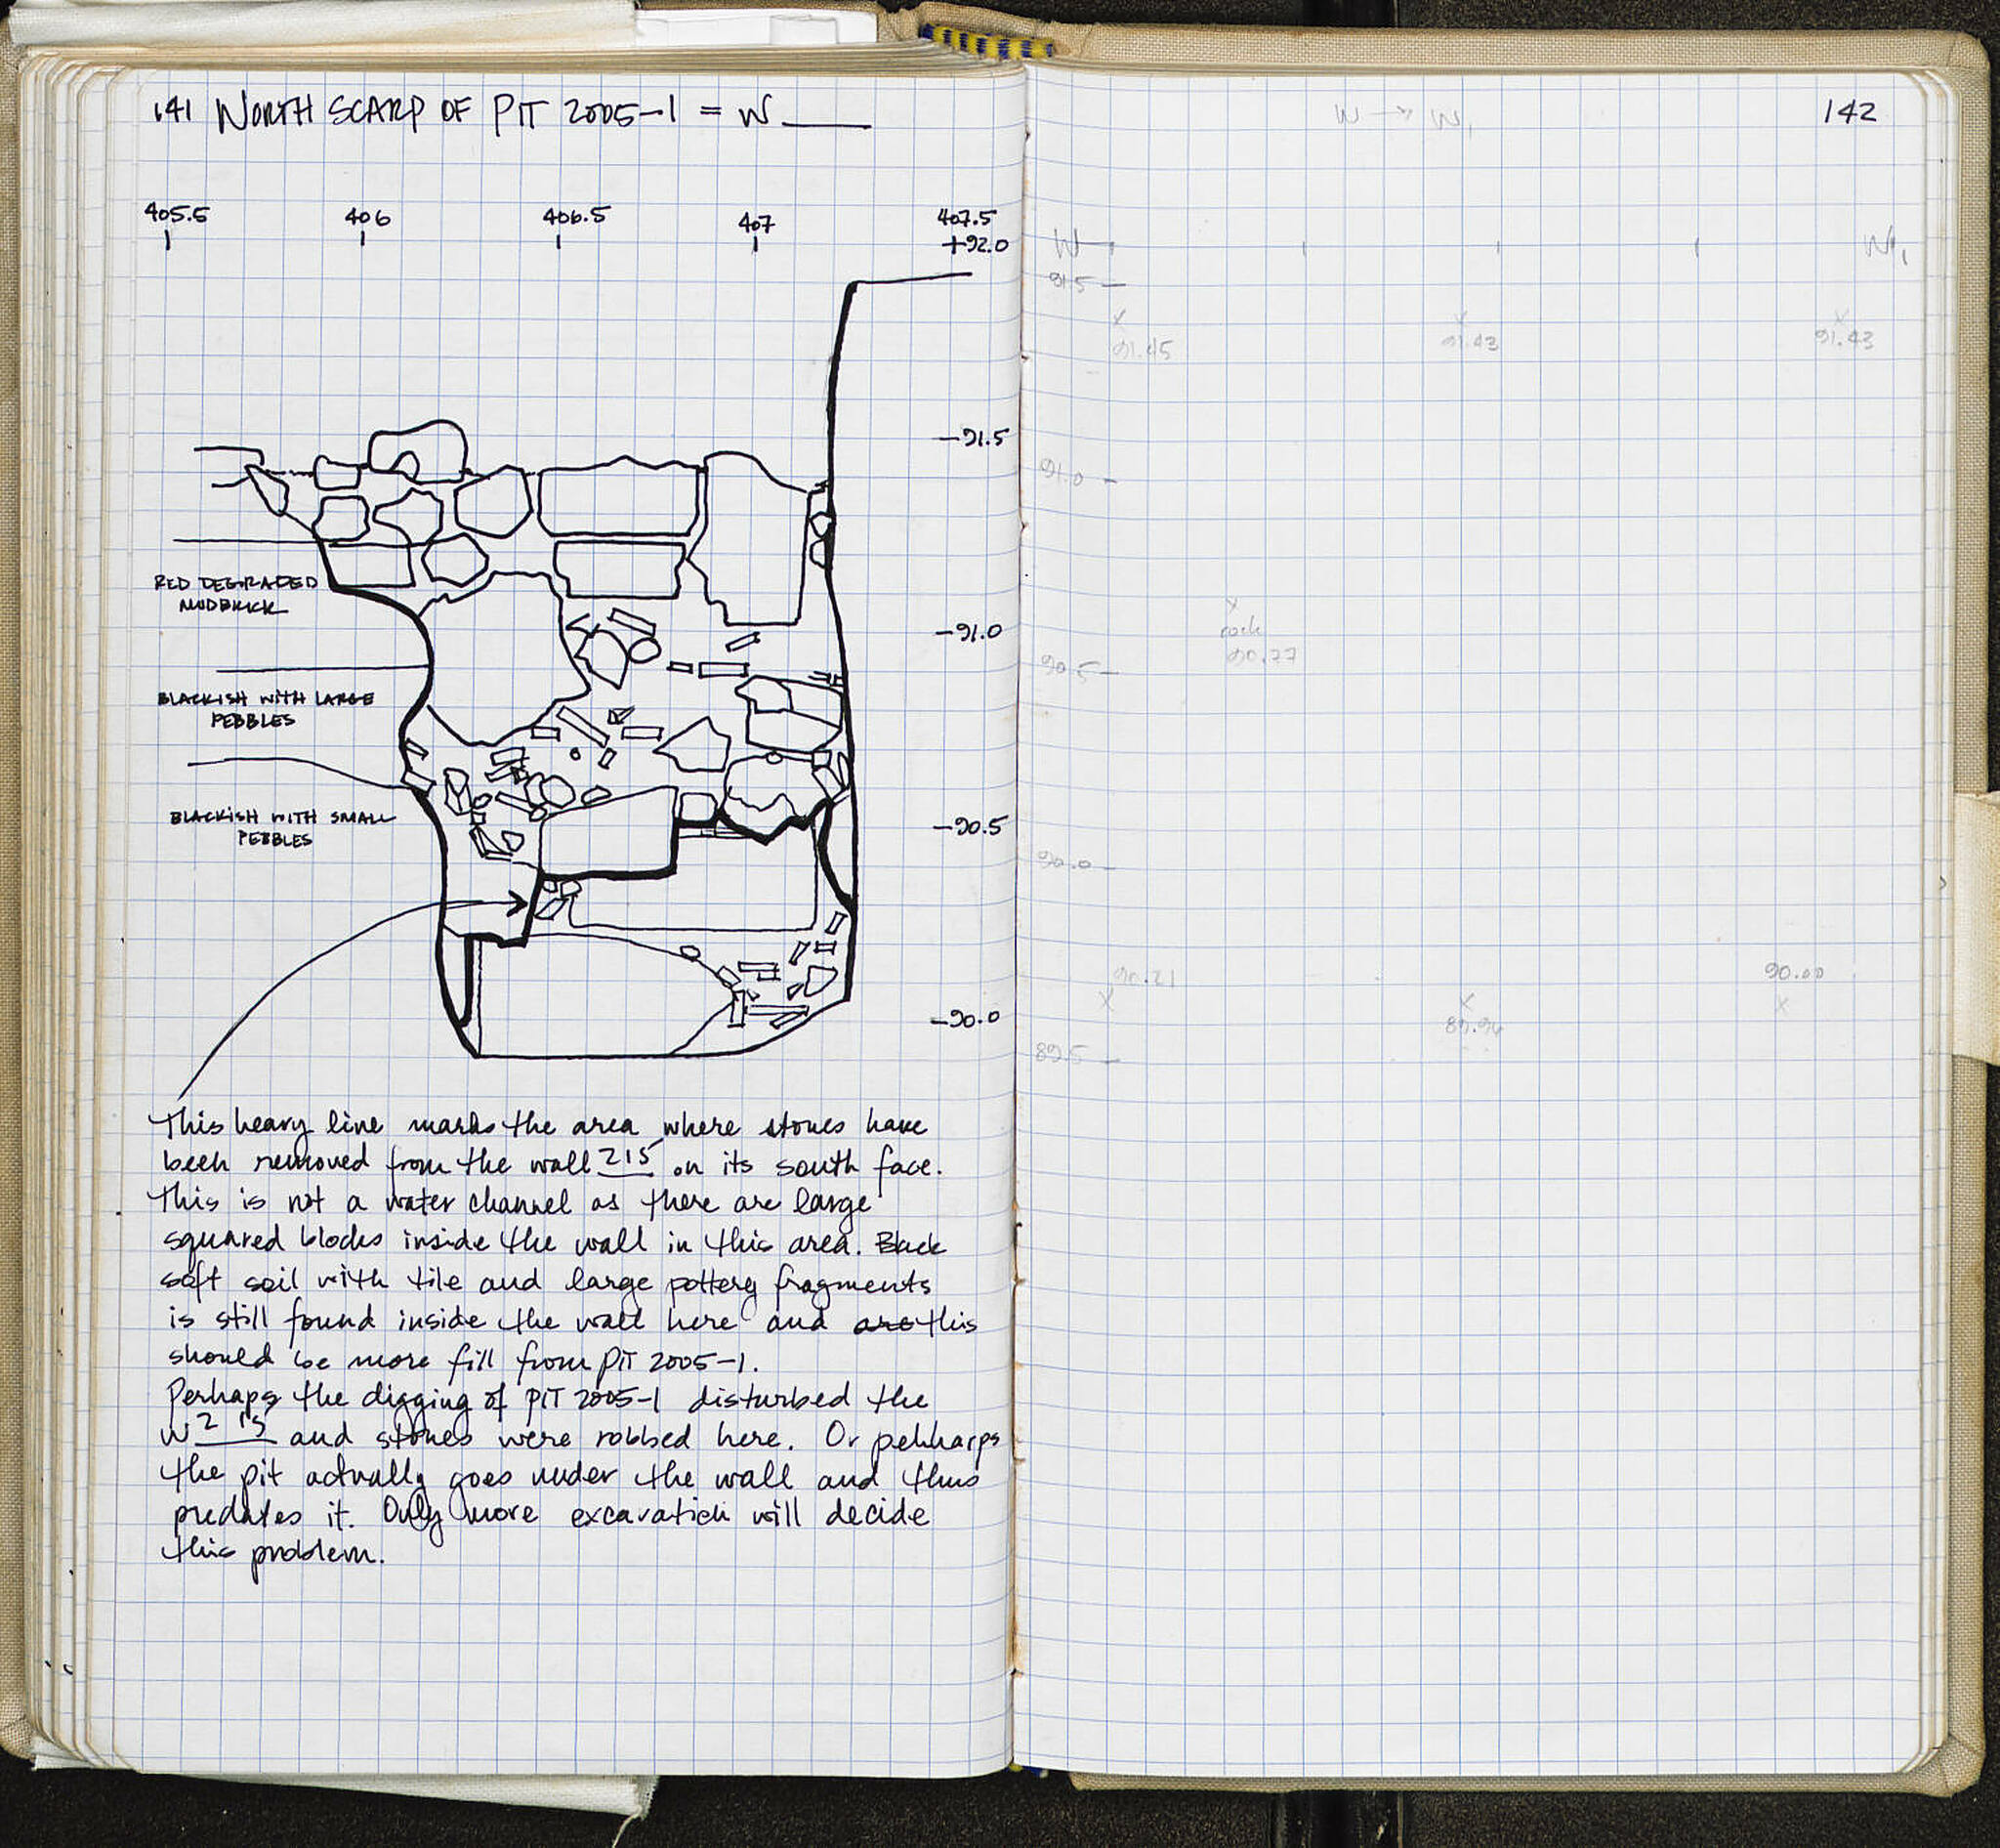 141 NORTH SCARP OF PIT 2005-1 = W ____
405.5 406 406.5 407 407.5
+92.0
-91.5
RED DEGRADED
MUDBRICK
-91.0
BLACKISH WITH LARGE
PEBBLES
BLACKISH WITH SMALL
PEBBLES
-90.5
-90.0
This heavy line marks the area where stones have
been removed from the wall 215 on its south face.
This is not a water channel as there are large
squared blocks inside the wall in this area. Back
soft soil with tile and large pottery fragments
is still found inside the wall here and are this
should be more fill from PIT 2005-1.
Perhaps the digging of PIT 2005-1 disturbed the
W 215 and stones were robbed here. Or pehharps
the pit actually goes under the wall and thus
predates it. Only more excavation will decide
this problem.
142
W → W1
W W1
91.5
x x x
91.45 91.43 91.43
91.0
x
rock
90.77
90.5
90.0
90.21 90.00
x x x
89.96
89.5